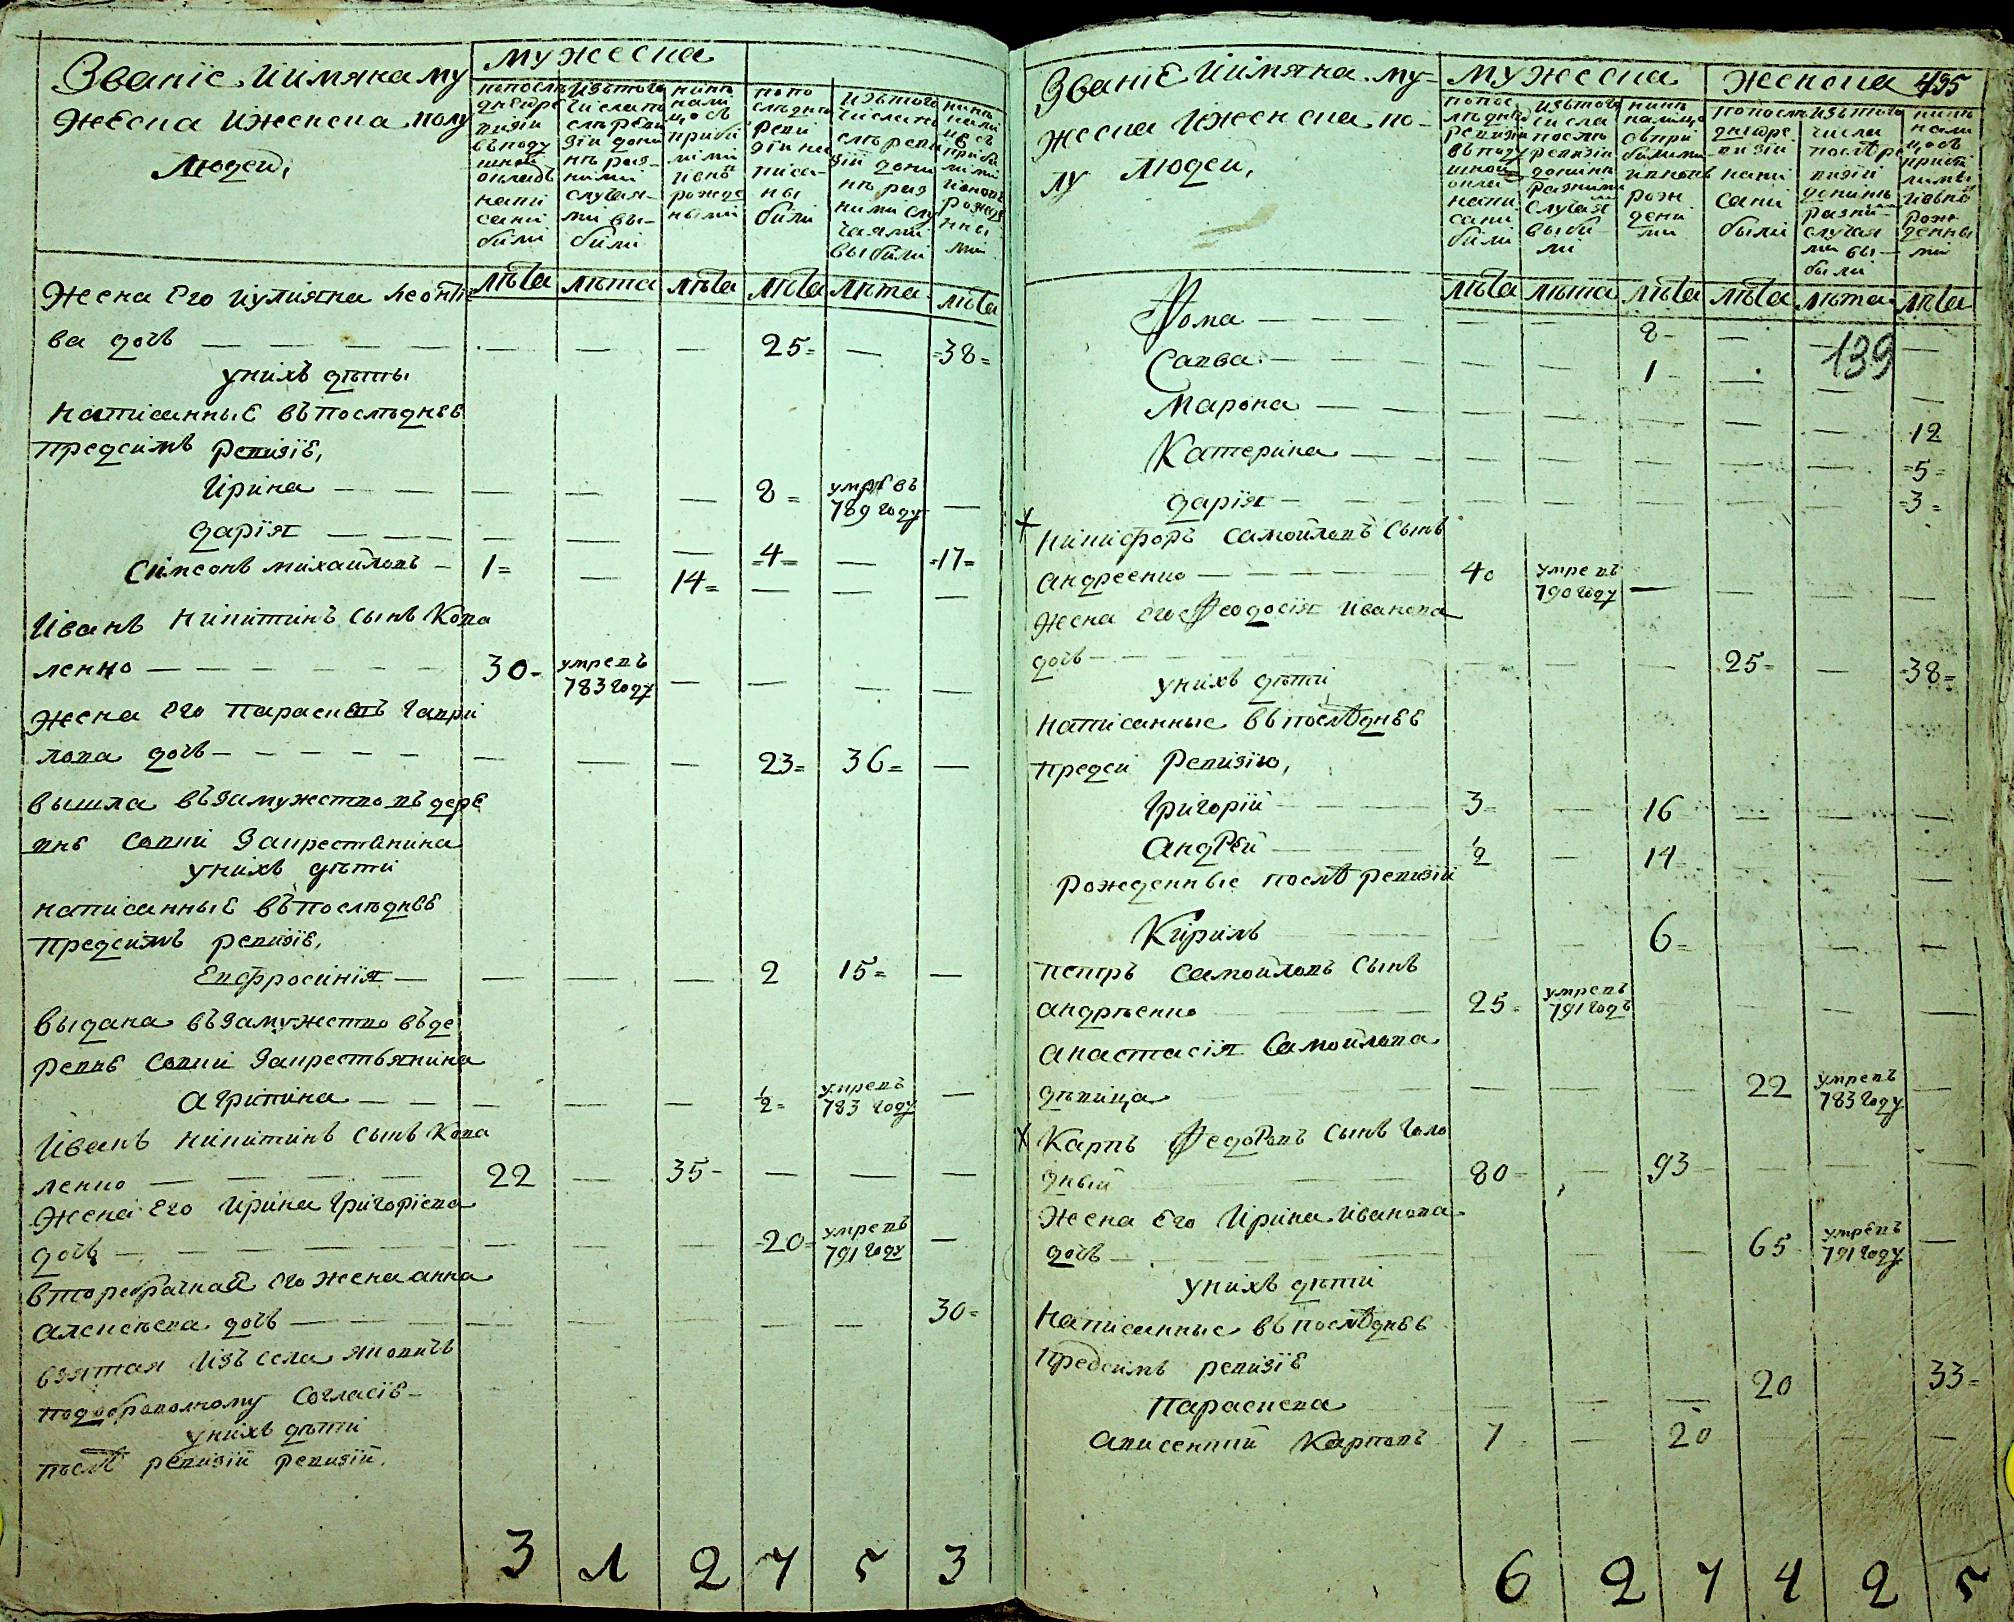 Званіе Иимяна му
жеска Иженска полу
людей,
мужеска
попослѣ днеіре визіи въподу шной окладъ написани били
Изътого числапослѣ реви зіи донинѣ раз- ными случая- ми вы- били
нинѣ нали цосъ прибилими ивновъ рождеными
попо слѣдней реви зіи написа- ны били
Изътого числапослѣ реви зіи донинѣ раз ними слу чаями выбили
нинѣ нали цосъ прибилими ивновъ рожденными
лѣта лѣта лѣта лѣта лѣта лѣта
жена Его иулияна леонтіе
ва дочь — — — — — — — 25= — =38=
унихъ дѣты
написанные въпослѣднее
предсимъ ревизіе,
Ирина — — — — — 8= умре въ 789 году —
дарія — — — — — — 4= — =17=
Симеонъ михайловъ — 1= — 14= — — —
Иванъ никитинъ сынъ Кова
ленко — — — — 30- умревъ 783 году — — — —
жена Его параскевъ гаври
лова дочь — — — — — — — — 23= 36= —
вышла въ замужество въ дере
вне
унихъ дѣти
написанные въпослѣднее
предсимъ ревизіе,
Евфросинія — — — — 2 15= —
выдана въ замужество въде
ревне
агрипина — — — — — ½= умревъ 783 году —
Иванъ никитинъ сынъ Кова
ленко — — — — 22 — 35- — — —
жена Его Ирина Григоріева
дочь — — — — — — — — 20= умревъ 791 году —
второбрачная Его жена анна
алексѣева дочь — — — — — — — — 30=
взятая Изъ села
подобровольному согласіе-
унихъ дѣти
послѣ ревизіи ревизіи.
3 1 2 7 5 3
Званіе Иимяна му-
жеска Иженска по-
лу людей,
мужеска женска 495
попос лѣдней ревизіи въподу шной окла написани били
изътого числа послѣ ревизіи донинѣ разними случая выби ми
нинѣ налицо сприбилими ивновь рож дени ми
попослѣ днеіре визіи напи сани были
изътого числа послѣре визіи донинѣ разни случая ми вы- были
нинѣ нали цосъ приби лимы ивнов рож денны ми
лѣта лѣта лѣта лѣта лѣта лѣта
Фома — — — — — — 8 — — —
139
Савва — — — — — — 1 — — —
Марфа — — — — — — — — 12
Катерина — — — — — — — — =5=
дарія — — — — — — — — =3=
х никифоръ самойловъ сынъ
андреенко — — — — 40 умревъ 790 году — — — —
жена его Феодосія Иванова
дочь — — — — — — — 25= — =38=
унихъ дѣти
написанные въпослѣднее
предси ревизію,
Григорій — — — 3= — 16 — — —
Андрей — — — ½ — 14 — — —
рожденные послѣ ревизіи
Кирилъ — — — — — 6= — — —
петръ самойловъ сынъ
андрѣенко — — — 25= умревъ 791 годъ — — — —
анастасія Самойлова
дѣвица — — — — — — 22 умревъ 783 году —
х Карпъ Федоровъ сынъ Голо
дный — — — 80= — 93- — — —
жена Его Ирина Иванова
дочь — — — — — — 65- умревъ 791 году —
унихъ дѣти
написанные въпослѣднее
предсимъ ревизіе
Параскева — — — — 20 33=
Авксентий Карповъ 7 — 20 — — —
6 2 7 4 2 5